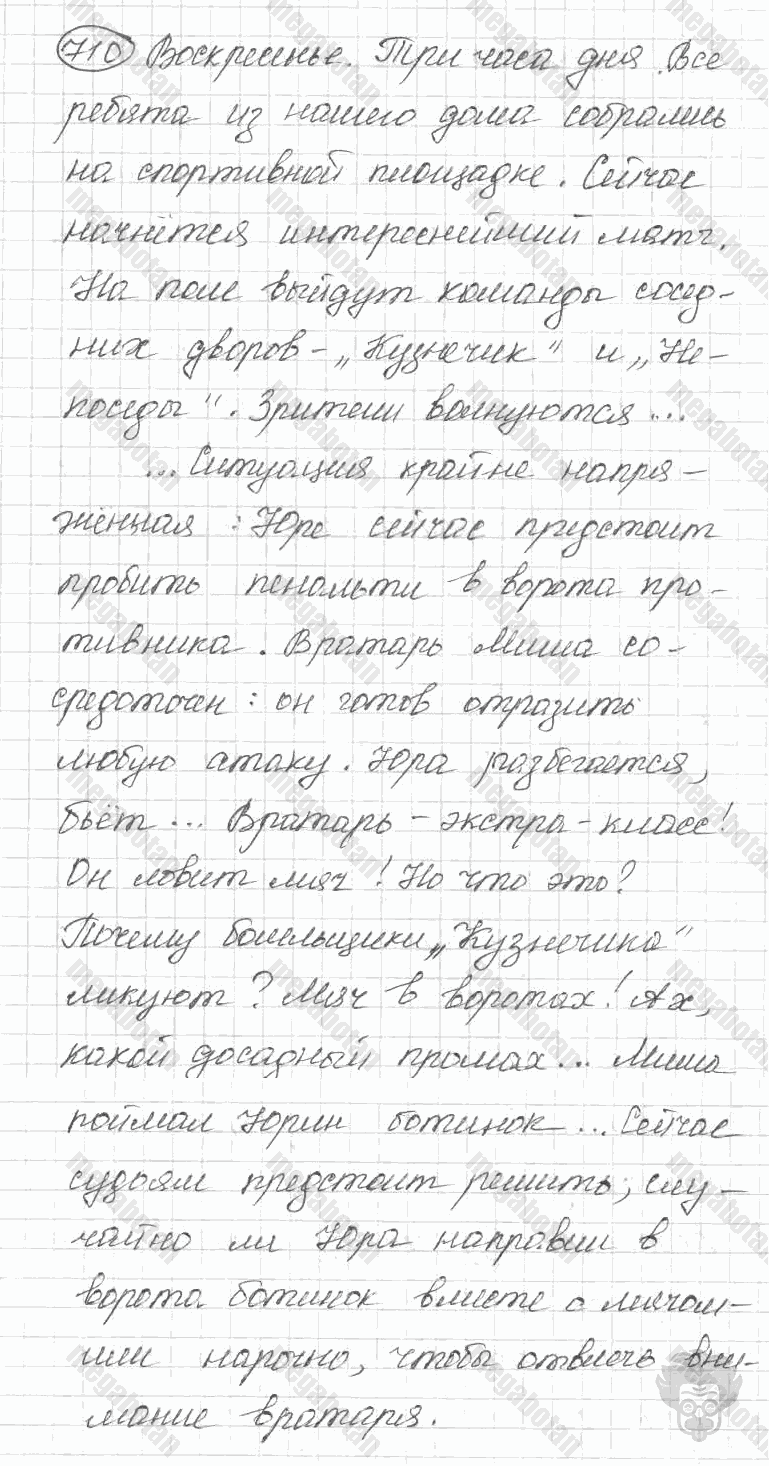 710 Воскресенье. Три часа дня. Все
ребята из нашего дома собрались
на спортивной площадке. Сейчас
начнётся интереснейший матч.
На поле выйдут команды сосед-
них дворов - „Кузнечик" и „Не-
поседы". Зрители волнуются...
... Ситуация крайне напря-
жённая : Юре сейчас предстоит
пробить пенальти в ворота про-
тивника. Вратарь Миша со-
средоточен : он готов отразить
любую атаку. Юра разбегается,
бьёт ... Вратарь - экстра - класс!
Он ловит мяч! Но что это?
Почему болельщики „Кузнечика"
ликуют? Мяч в воротах! Ах,
какой досадный промах ... Миша
поймал Юрин ботинок ... Сейчас
судьям предстоит решить, слу-
чайно ли Юра направил в
ворота ботинок вместе с мячом
или нарочно, чтобы отвлечь вни-
мание вратаря.
megabotan